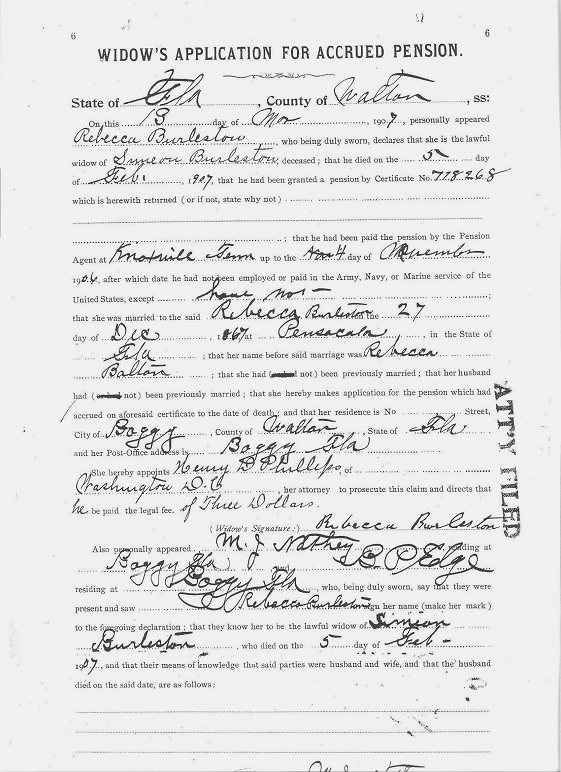 6
6
WIDOW'S APPLICATION FOR ACCRUED PENSION.
State of Fla, County of Walton, ss:
On this 13 day of Mar, 1907, personally appeared
Rebecca Burleston, who being duly sworn, declares that she is the lawful
widow of Simeon Burleston, deceased; that he died on the 5 day
of Feb., 1907, that he had been granted a pension by Certificate No. 718268
which is herewith returned (or if not, state why not)
; that he had been paid the pension by the Pension
Agent at Knoxville Tenn up to the 4 day of November
1906, after which date he had not been employed or paid in the Army, Navy, or Marine service of the
United States, except have not
that she was married to the said Rebecca Burleston on the 27
day of Dec, 1867 at Pensacola, in the State of
Fla; that her name before said marriage was Rebecca
Balton; that she had (not) been previously married; that her husband
had (not) been previously married; that she hereby makes application for the pension which had
accrued on aforesaid certificate to the date of death; and that her residence is No Street,
City of Boggy, County of Walton, State of Fla
and her Post-Office address is Boggy Fla
She hereby appoints Henry D Phillips, of
Washington D.C., her attorney to prosecute this claim and directs that
he be paid the legal fee. of Three Dollars.
(Widow's Signature:) Rebecca Burleston
ATT'Y FILED
Also personally appeared M. J. Nathey residing at
Boggy Fla and B P Edge
residing at Boggy Fla, who, being duly sworn, say that they were
present and saw Rebecca Burleston sign her name (make her mark)
to the foregoing declaration; that they know her to be the lawful widow of Simeon
Burleston, who died on the 5 day of Feb
1907, and that their means of knowledge that said parties were husband and wife, and that the husband
died on the said date, are as follows: